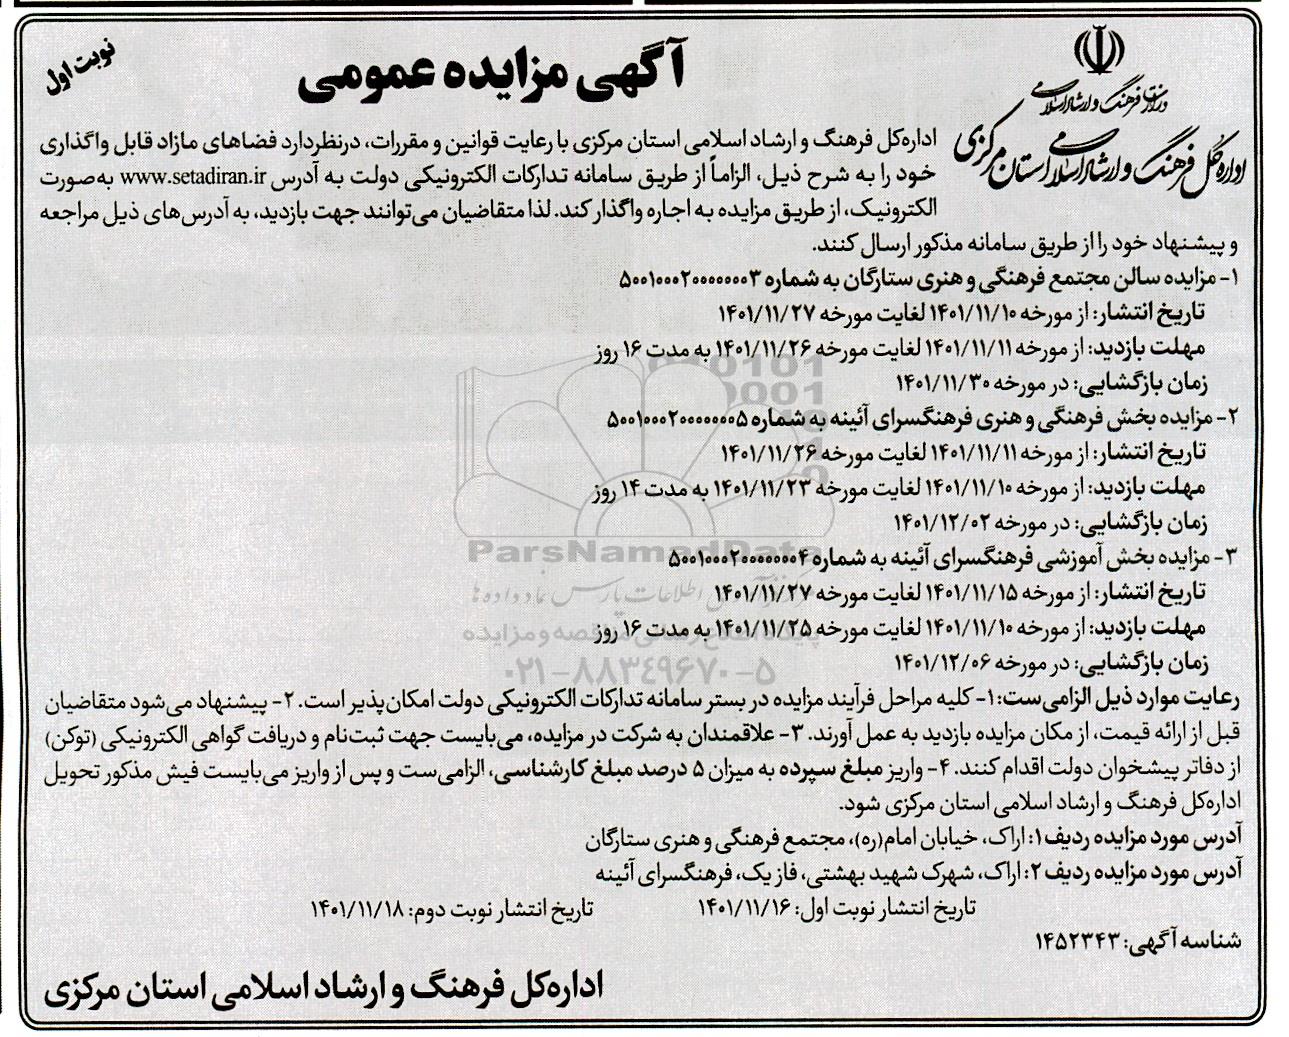 نوبت اول
آگهی مزایده عمومی
وزارت فرهنگ و ارشاد اسلامی
اداره کل فرهنگ و ارشاد اسلامی استان مرکزی
اداره‌کل فرهنگ و ارشاد اسلامی استان مرکزی با رعایت قوانین و مقررات، درنظردارد فضاهای مازاد قابل واگذاری
خود را به شرح ذیل، الزاماً از طریق سامانه تدارکات الکترونیکی دولت به آدرس www.setadiran.ir به‌صورت
الکترونیک، از طریق مزایده به اجاره واگذار کند. لذا متقاضیان می‌توانند جهت بازدید، به آدرس‌های ذیل مراجعه
و پیشنهاد خود را از طریق سامانه مذکور ارسال کنند.
۱- مزایده سالن مجتمع فرهنگی و هنری ستارگان به شماره ۵۰۰۱۰۰۰۲۰۰۰۰۰۰۰۳
تاریخ انتشار: از مورخه ۱۴۰۱/۱۱/۱۰ لغایت مورخه ۱۴۰۱/۱۱/۲۷
مهلت بازدید: از مورخه ۱۴۰۱/۱۱/۱۱ لغایت مورخه ۱۴۰۱/۱۱/۲۶ به مدت ۱۶ روز
زمان بازگشایی: در مورخه ۱۴۰۱/۱۱/۳۰
۲- مزایده بخش فرهنگی و هنری فرهنگسرای آئینه به شماره ۵۰۰۱۰۰۰۲۰۰۰۰۰۰۰۵
تاریخ انتشار: از مورخه ۱۴۰۱/۱۱/۱۱ لغایت مورخه ۱۴۰۱/۱۱/۲۶
مهلت بازدید: از مورخه ۱۴۰۱/۱۱/۱۰ لغایت مورخه ۱۴۰۱/۱۱/۲۳ به مدت ۱۴ روز
زمان بازگشایی: در مورخه ۱۴۰۱/۱۲/۰۲
ParsNamadData
۳- مزایده بخش آموزشی فرهنگسرای آئینه به شماره ۵۰۰۱۰۰۰۲۰۰۰۰۰۰۰۴
تاریخ انتشار: از مورخه ۱۴۰۱/۱۱/۱۵ لغایت مورخه ۱۴۰۱/۱۱/۲۷
مهلت بازدید: از مورخه ۱۴۰۱/۱۱/۱۰ لغایت مورخه ۱۴۰۱/۱۱/۲۵ به مدت ۱۶ روز
زمان بازگشایی: در مورخه ۱۴۰۱/۱۲/۰۶
۰۲۱-۸۸۳۴۹۶۷۰-۵
رعایت موارد ذیل الزامی‌ست: ۱- کلیه مراحل فرآیند مزایده در بستر سامانه تدارکات الکترونیکی دولت امکان‌پذیر است. ۲- پیشنهاد می‌شود متقاضیان
قبل از ارائه قیمت، از مکان مزایده بازدید به عمل آورند. ۳- علاقمندان به شرکت در مزایده، می‌بایست جهت ثبت‌نام و دریافت گواهی الکترونیکی (توکن)
از دفاتر پیشخوان دولت اقدام کنند. ۴- واریز مبلغ سپرده به میزان ۵ درصد مبلغ کارشناسی، الزامی‌ست و پس از واریز می‌بایست فیش مذکور تحویل
اداره‌کل فرهنگ و ارشاد اسلامی استان مرکزی شود.
آدرس مورد مزایده ردیف ۱: اراک، خیابان امام(ره)، مجتمع فرهنگی و هنری ستارگان
آدرس مورد مزایده ردیف ۲: اراک، شهرک شهید بهشتی، فاز یک، فرهنگسرای آئینه
تاریخ انتشار نوبت اول: ۱۴۰۱/۱۱/۱۶ تاریخ انتشار نوبت دوم: ۱۴۰۱/۱۱/۱۸
شناسه آگهی: ۱۴۵۲۳۴۳
اداره‌کل فرهنگ و ارشاد اسلامی استان مرکزی